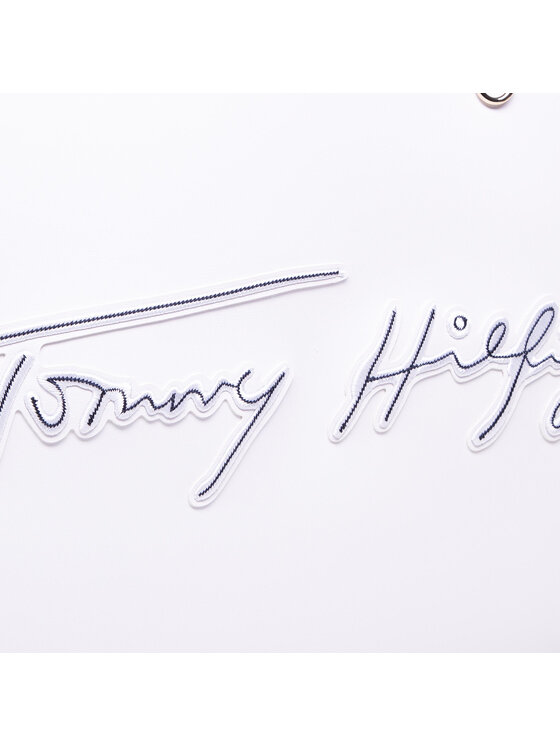 Tommy Hilfi